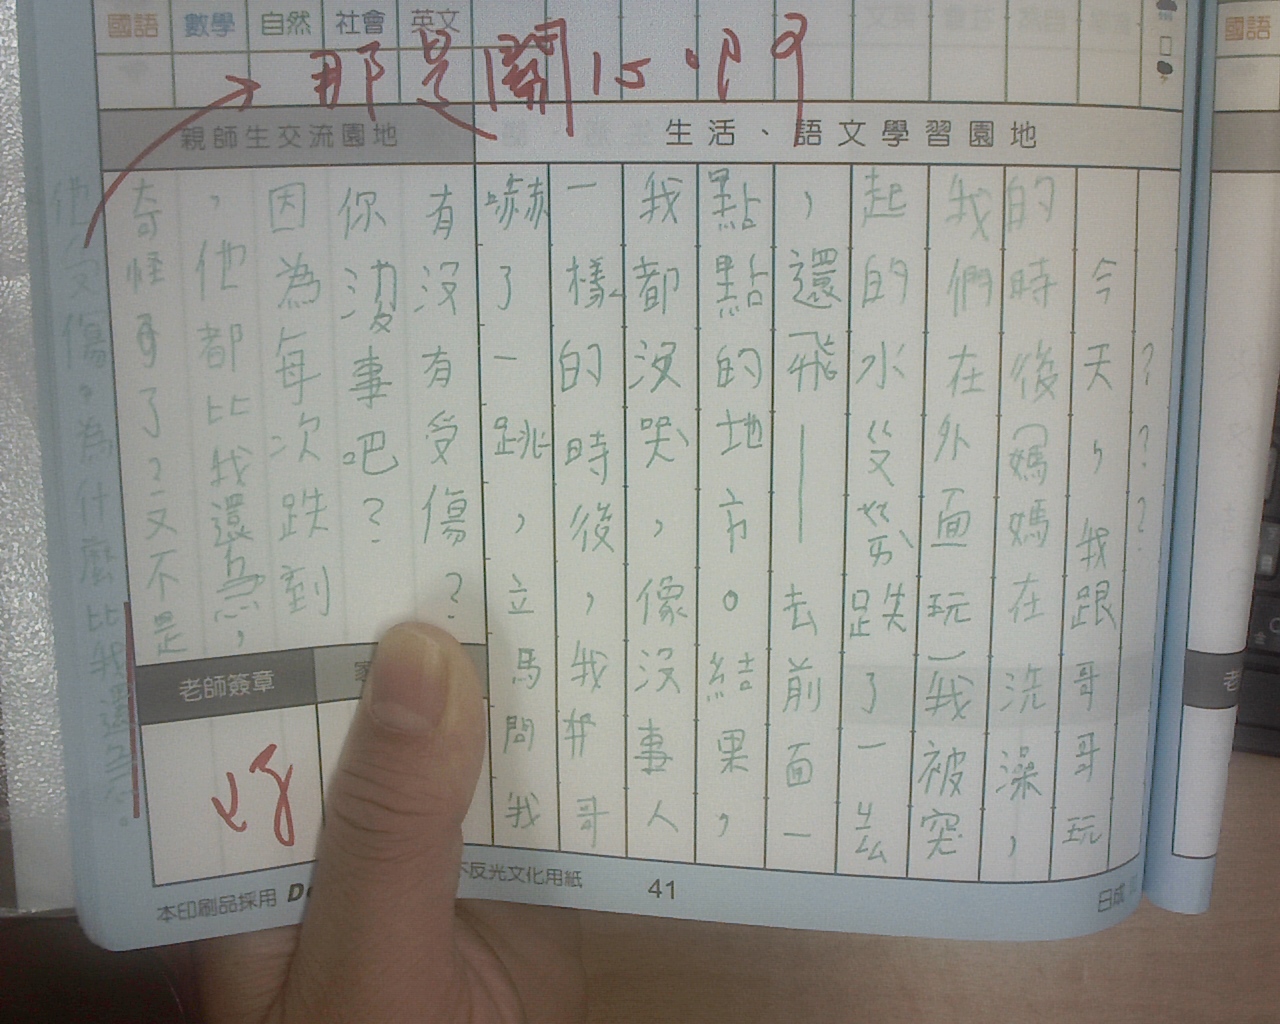 國語 數學 自然 社會 英文
國語
那是關心啊
親師生交流園地
生活、語文學習園地
???
今天,我跟哥哥玩
的時後(媽媽在洗澡,
我們在外面玩)我被突
起的水ㄆㄆ跌了一
,還飛——去前面一
點點的地方。結果,
我都沒哭,像沒事人
一樣。的時後,我哥
嚇了一跳,立馬問我
有沒有受傷?
你沒事吧?
因為每次跌到
,他都比我還急,
奇怪了?又不是
他受傷。為什麼比我還急。
老師簽章
好
本印刷品採用
不反光文化用紙
41
日成